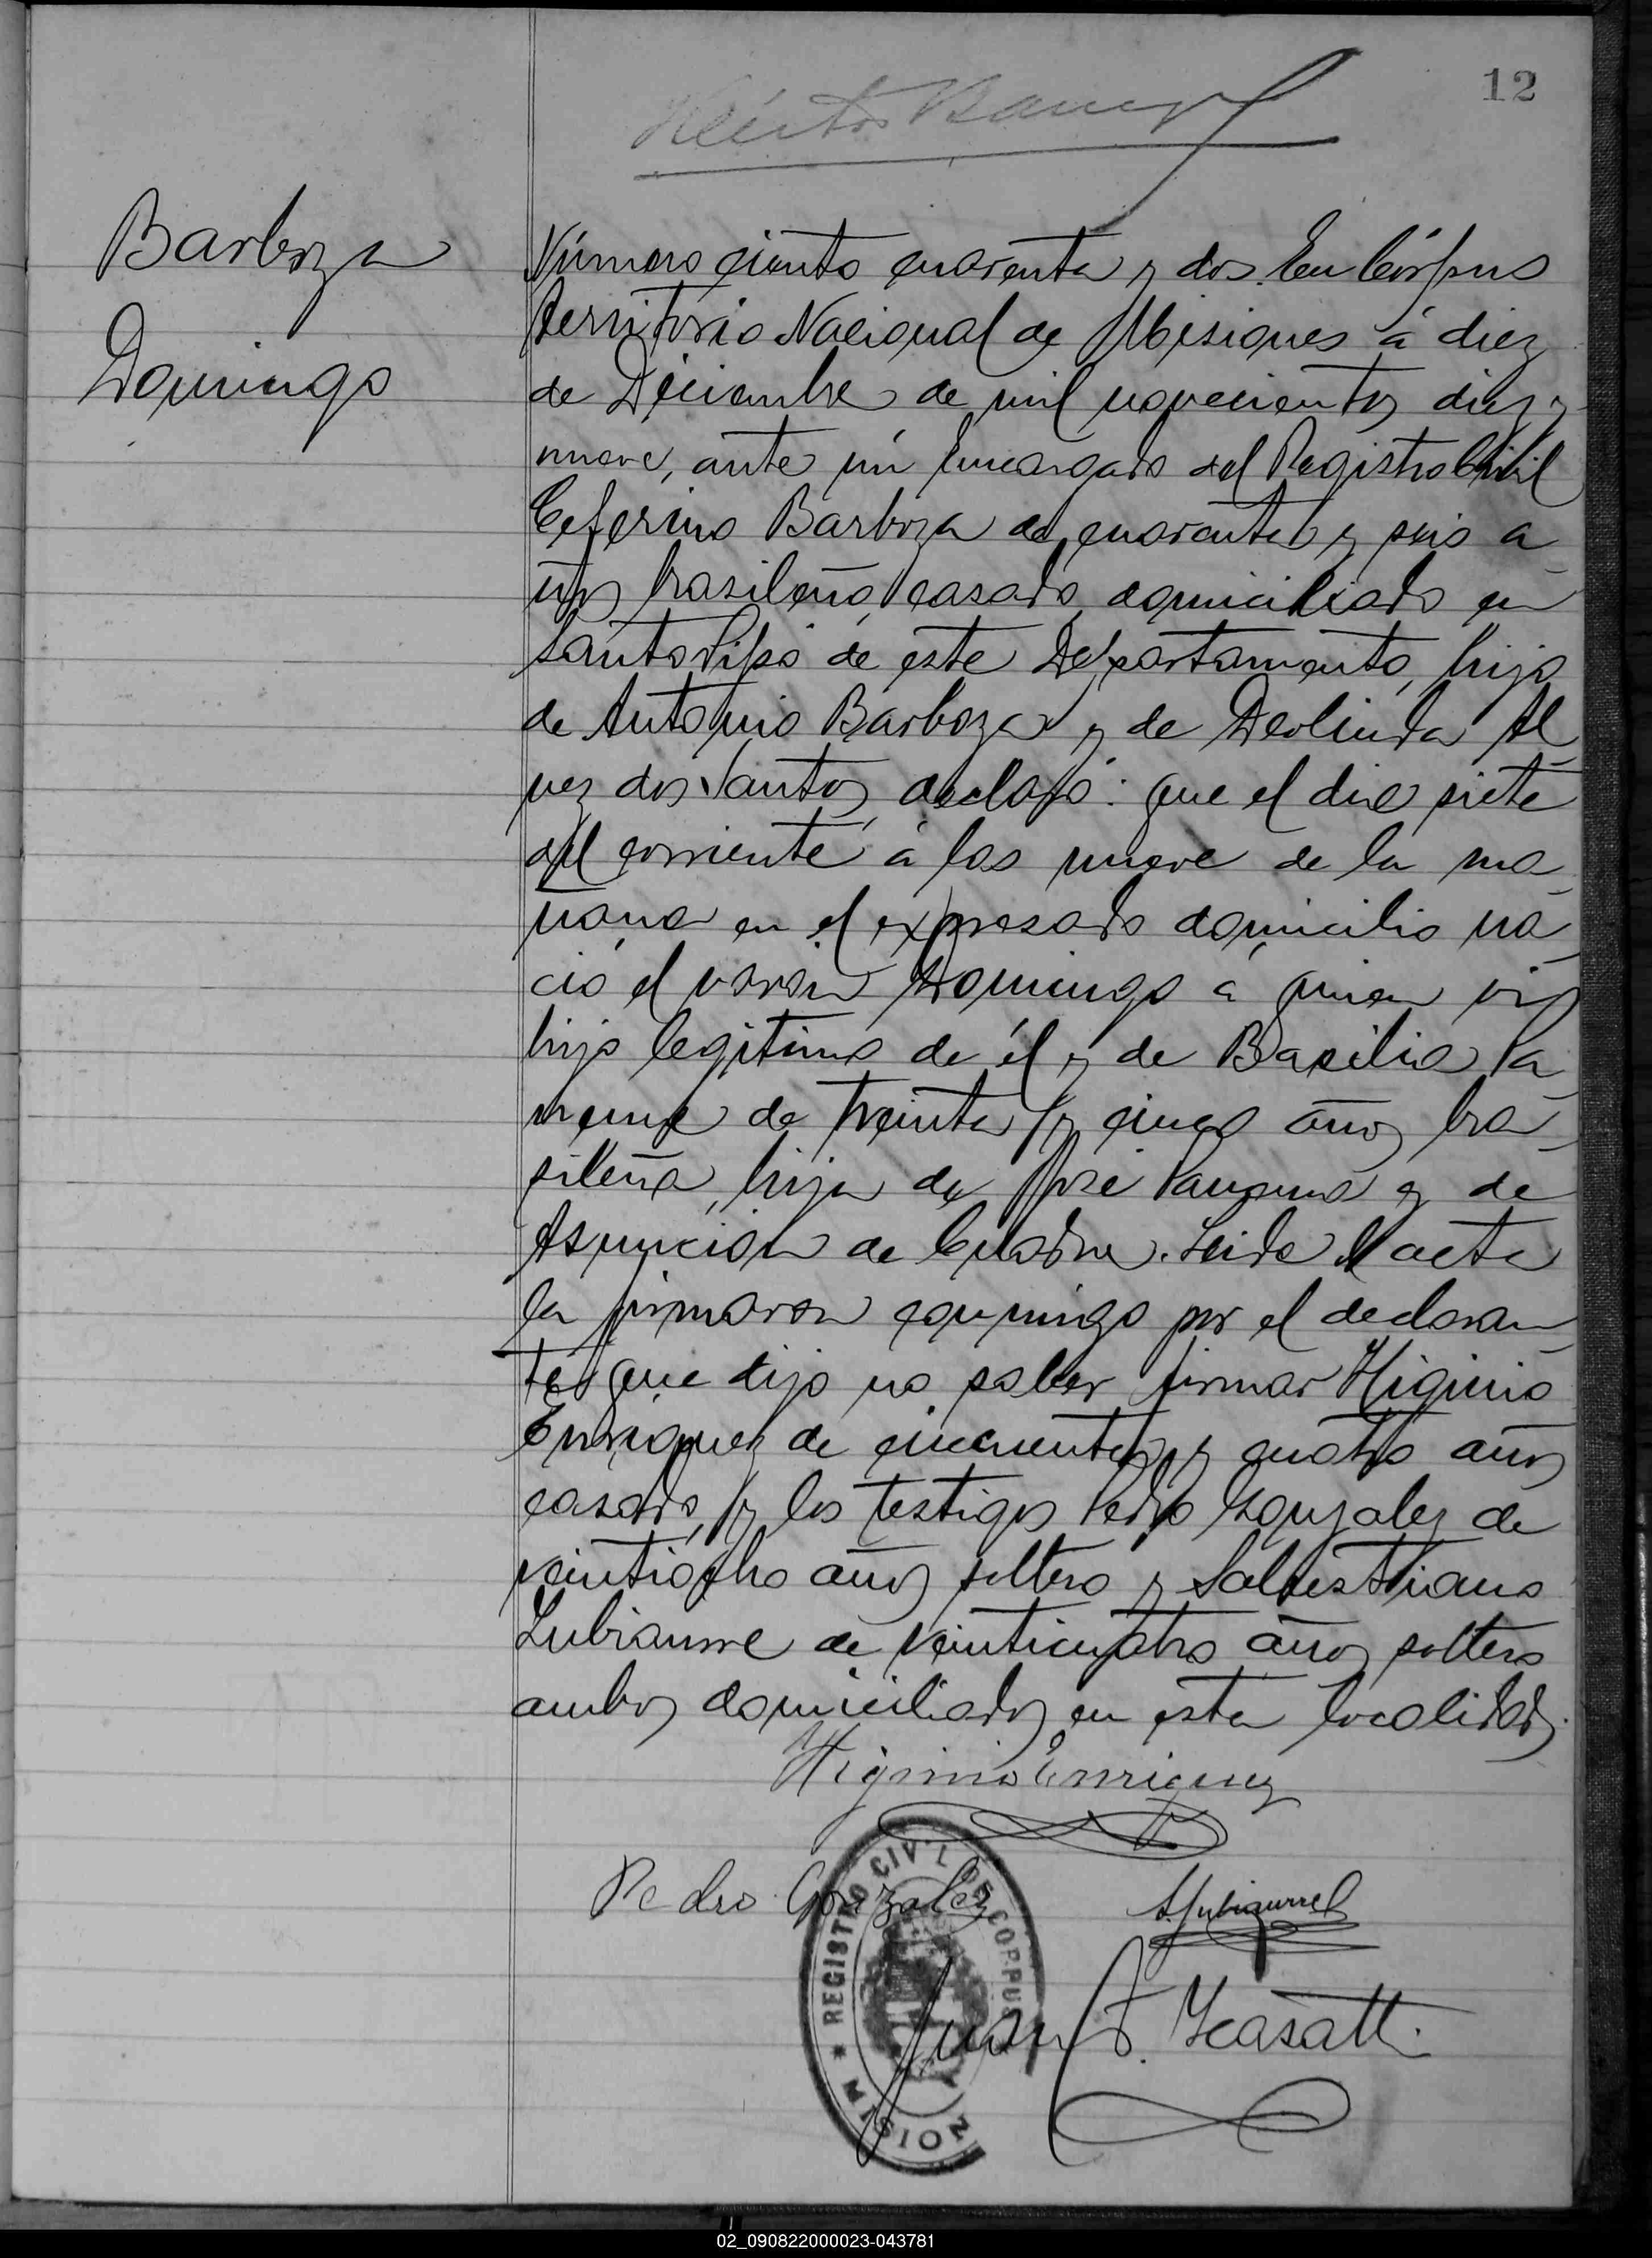 12
Héctor
Barboza
Domingo
Número ciento cuarenta y dos. En Córpus
Territorio Nacional de Misiones á diez
de Diciembre de mil novecientos diez y
nueve, ante mí Encargado del Registro Civil
Ceferino Barboza de cuarenta y seis a-
ños brasileño casado, domiciliado en
Santo Pipó de este Departamento, hijo
de Antonio Barboza y de Deolinda Al-
vez dos Santos, declaró: que el dia siete
del corriente á las nueve de la ma-
ñana en el expresado domicilio na-
ció el varon Domingo á quien vi,
hijo legitimo de él y de Basilia
de treinta y cinco años bra-
sileña, hija de José y de
Asuncion de. Leida el acta
la firmaron conmigo por el declaran-
te que dijo no saber firmar Higinio
Enriquez de cincuenta y cuatro años
casado, y los testigos Pedro Gonzalez de
veintiocho años soltero y Salustiano
de veinticuatro años soltero
ambos domiciliados en esta localidad.
Higinio Enriquez
Pedro Gonzalez
Juan F.
REGISTRO CIVIL DE CORPUS
MISION
02_090822000023-043781